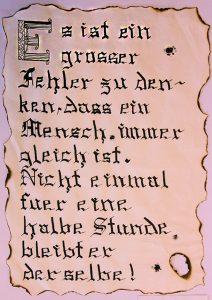 Es ist ein
grosser
Fehler zu den-
ken, dass ein
Mensch, immer
gleich ist.
Nicht einmal
fuer eine
halbe Stunde
bleibt er
derselbe!